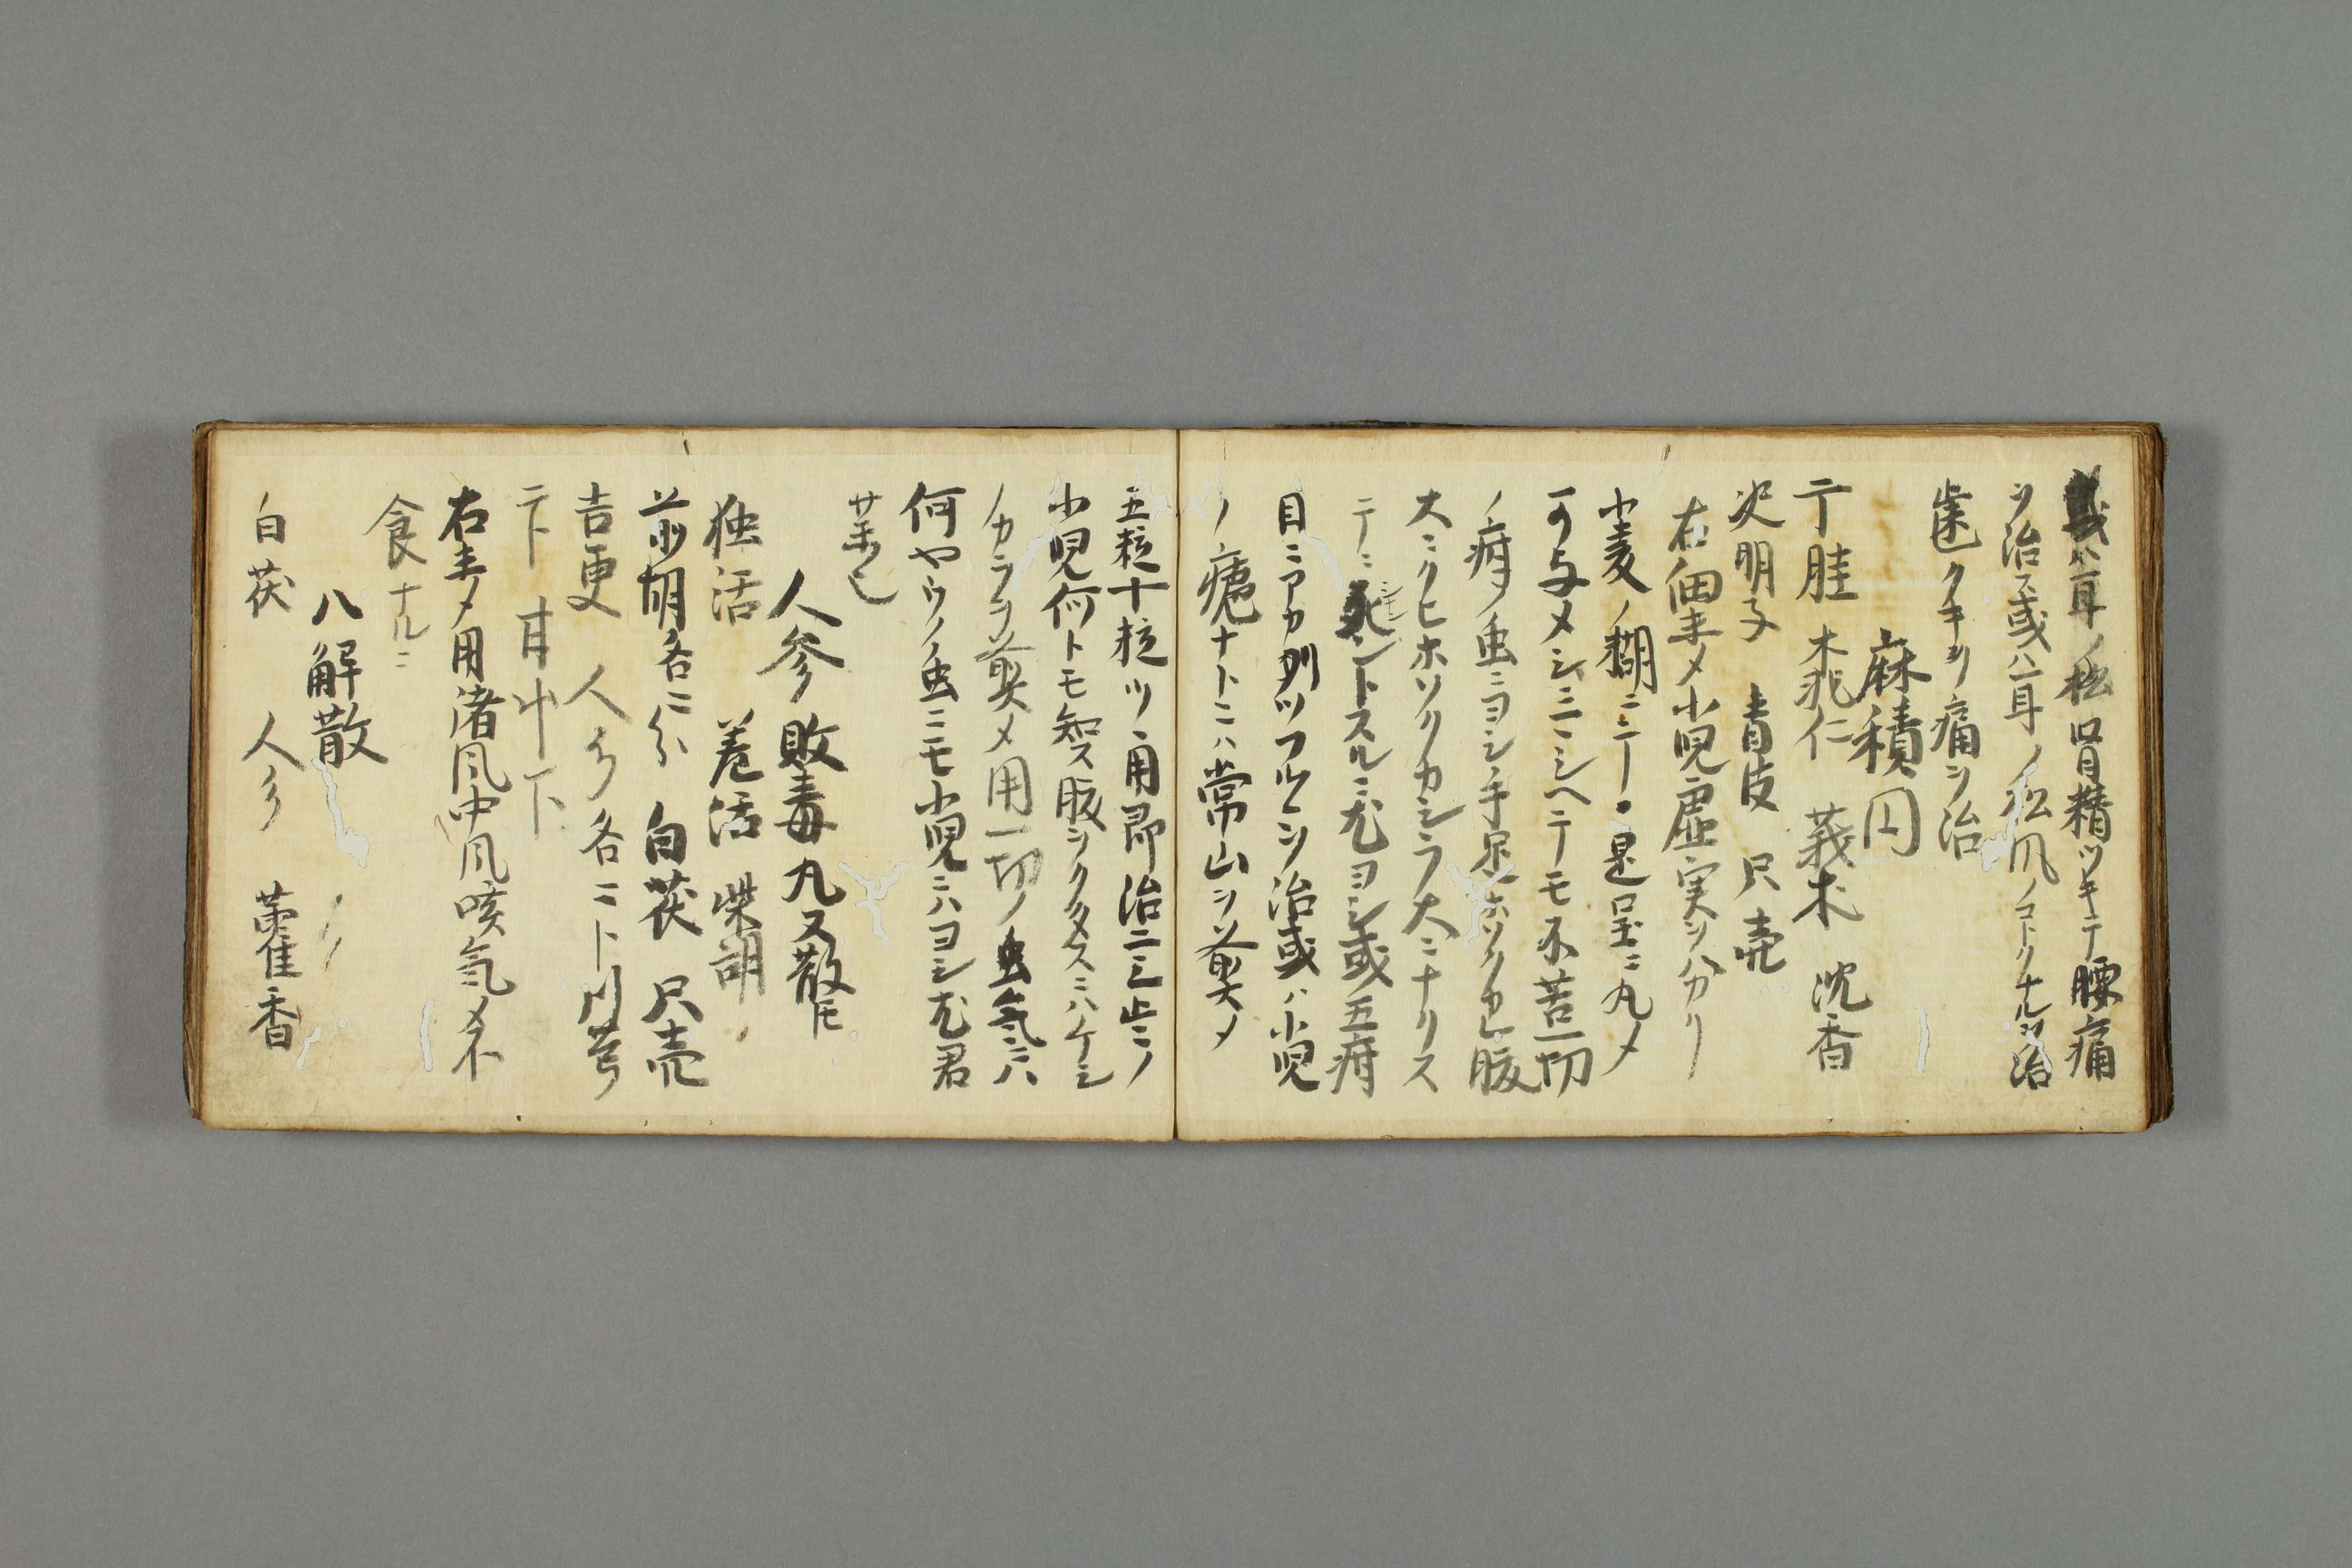 或ハ耳ノ 腎精ツキテ腰痛
ヲ治ス或ハ耳ノ 風ノコトクナルヲ治
歯クキヨリ痛ヲ治
麻積円
丁 木 桃仁 莪朮 沈香
決明子 青皮 只壳
右細末メ小児虚実ヲ分カリ
小麦ノ糊ニテ 是呈ニ丸メ
可与 メシニ ニシヘテモ不苦一切
ノ疳ノ虫ニヨシ手足ホソクカレ腹
大ニクヒホソクカシラ大ニナリス
テニ死ントスルニ尤ヨシ或五疳
目ニアカ ツフルヽヲ治或ハ小児
ノ瘧ナトニハ常山ヲ煎メ
五粒十粒ツヽ用即治
小児何トモ智ス腹ヲクタスニハケシ
ノカラヲ煎メ用一切ノ虫氣ニハ
何ヤウノ虫ニモ小児ニハヨシ尤君
薬也
人参敗毒丸又散ニモ
独活 羌活 柴胡
前胡各二分 白茯 只壳
吉更 人参各二卜 川芎
一卜 甘中下
右末メ用渚風中風咳氣メ不
食ナルニ
八解散
白茯 人参 藿香